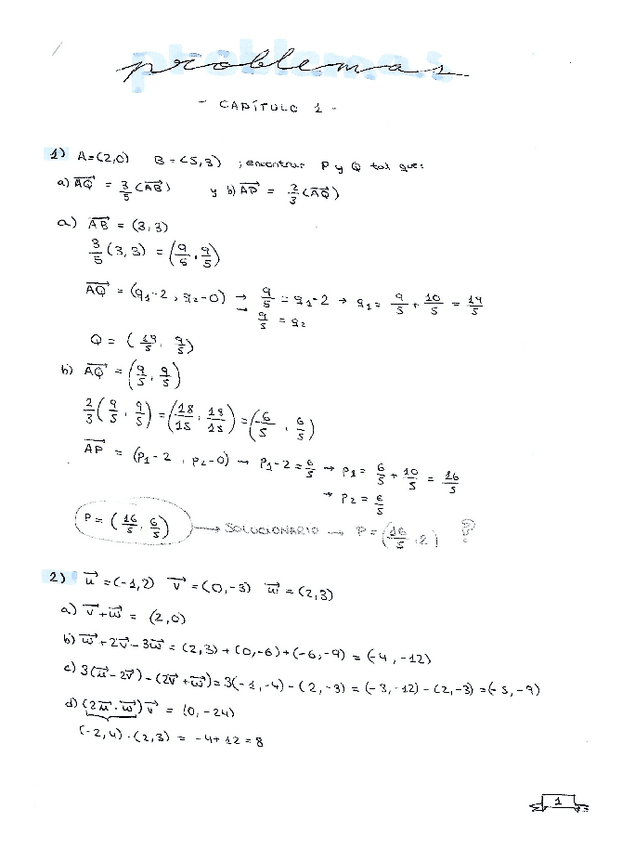 problemas
- CAPÍTULO 1 -
1) A=(2,0) B=(5,3) ; encontrar P y Q tal que:
a) AQ⃗ = 3/5 (AB⃗) y b) AP⃗ = 2/3 (AQ⃗)
a) AB⃗ = (3,3)
3/5 (3,3) = (9/5, 9/5)
AQ⃗ = (q1-2, q2-0) → 9/5 = q1-2 → q1 = 9/5 + 10/5 = 19/5
→ 9/5 = q2
Q = (19/5, 9/5)
b) AQ⃗ = (9/5, 9/5)
2/3 (9/5, 9/5) = (18/15, 18/15) = (6/5, 6/5)
AP⃗ = (P1-2, P2-0) → P1-2 = 6/5 → P1 = 6/5 + 10/5 = 16/5
→ P2 = 6/5
P = (16/5, 6/5) → SOLUCIONARIO → P = (16/5, 2) ?
2) u⃗ = (-1,2) v⃗ = (0,-3) w⃗ = (2,3)
a) v⃗+w⃗ = (2,0)
b) w⃗+2v⃗-3w⃗ = (2,3)+(0,-6)+(-6,-9) = (-4,-12)
c) 3(u⃗-2v⃗)-(2v⃗+w⃗) = 3(-1,-4)-(2,-3) = (-3,-12)-(2,-3) = (-5,-9)
d) (2u⃗·w⃗)v⃗ = (0,-24)
(-2,4)·(2,3) = -4+12 = 8
1